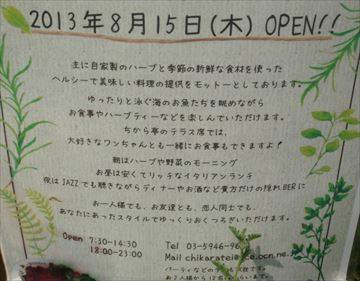 2013年8月15日(木) OPEN!!
主に自家製のハーブと季節の新鮮な食材を使った
ヘルシーで美味しい料理の提供をモットーとしております。
ゆったりと泳ぐ海のお魚たちを眺めながら
お食事やハーブティーなどを楽しんでいただけます。
ちから亭のテラス席では、
大好きなワンちゃんとも一緒にお食事もできますよ!
朝はハーブや野菜のモーニング
お昼は安くてリッチなイタリアンランチ
夜はJAZZでも聴きながらディナーやお酒など貴方だけの隠れBERに
お一人様でも、お友達とも、恋人同士でも、
あなたにあったスタイルでゆっくりおくつろぎいただけます。
Open 7:30-14:30
18:00-23:00
Tel 03-5946-96
Mail chikaratei
パーティなどの
お2人様から12名